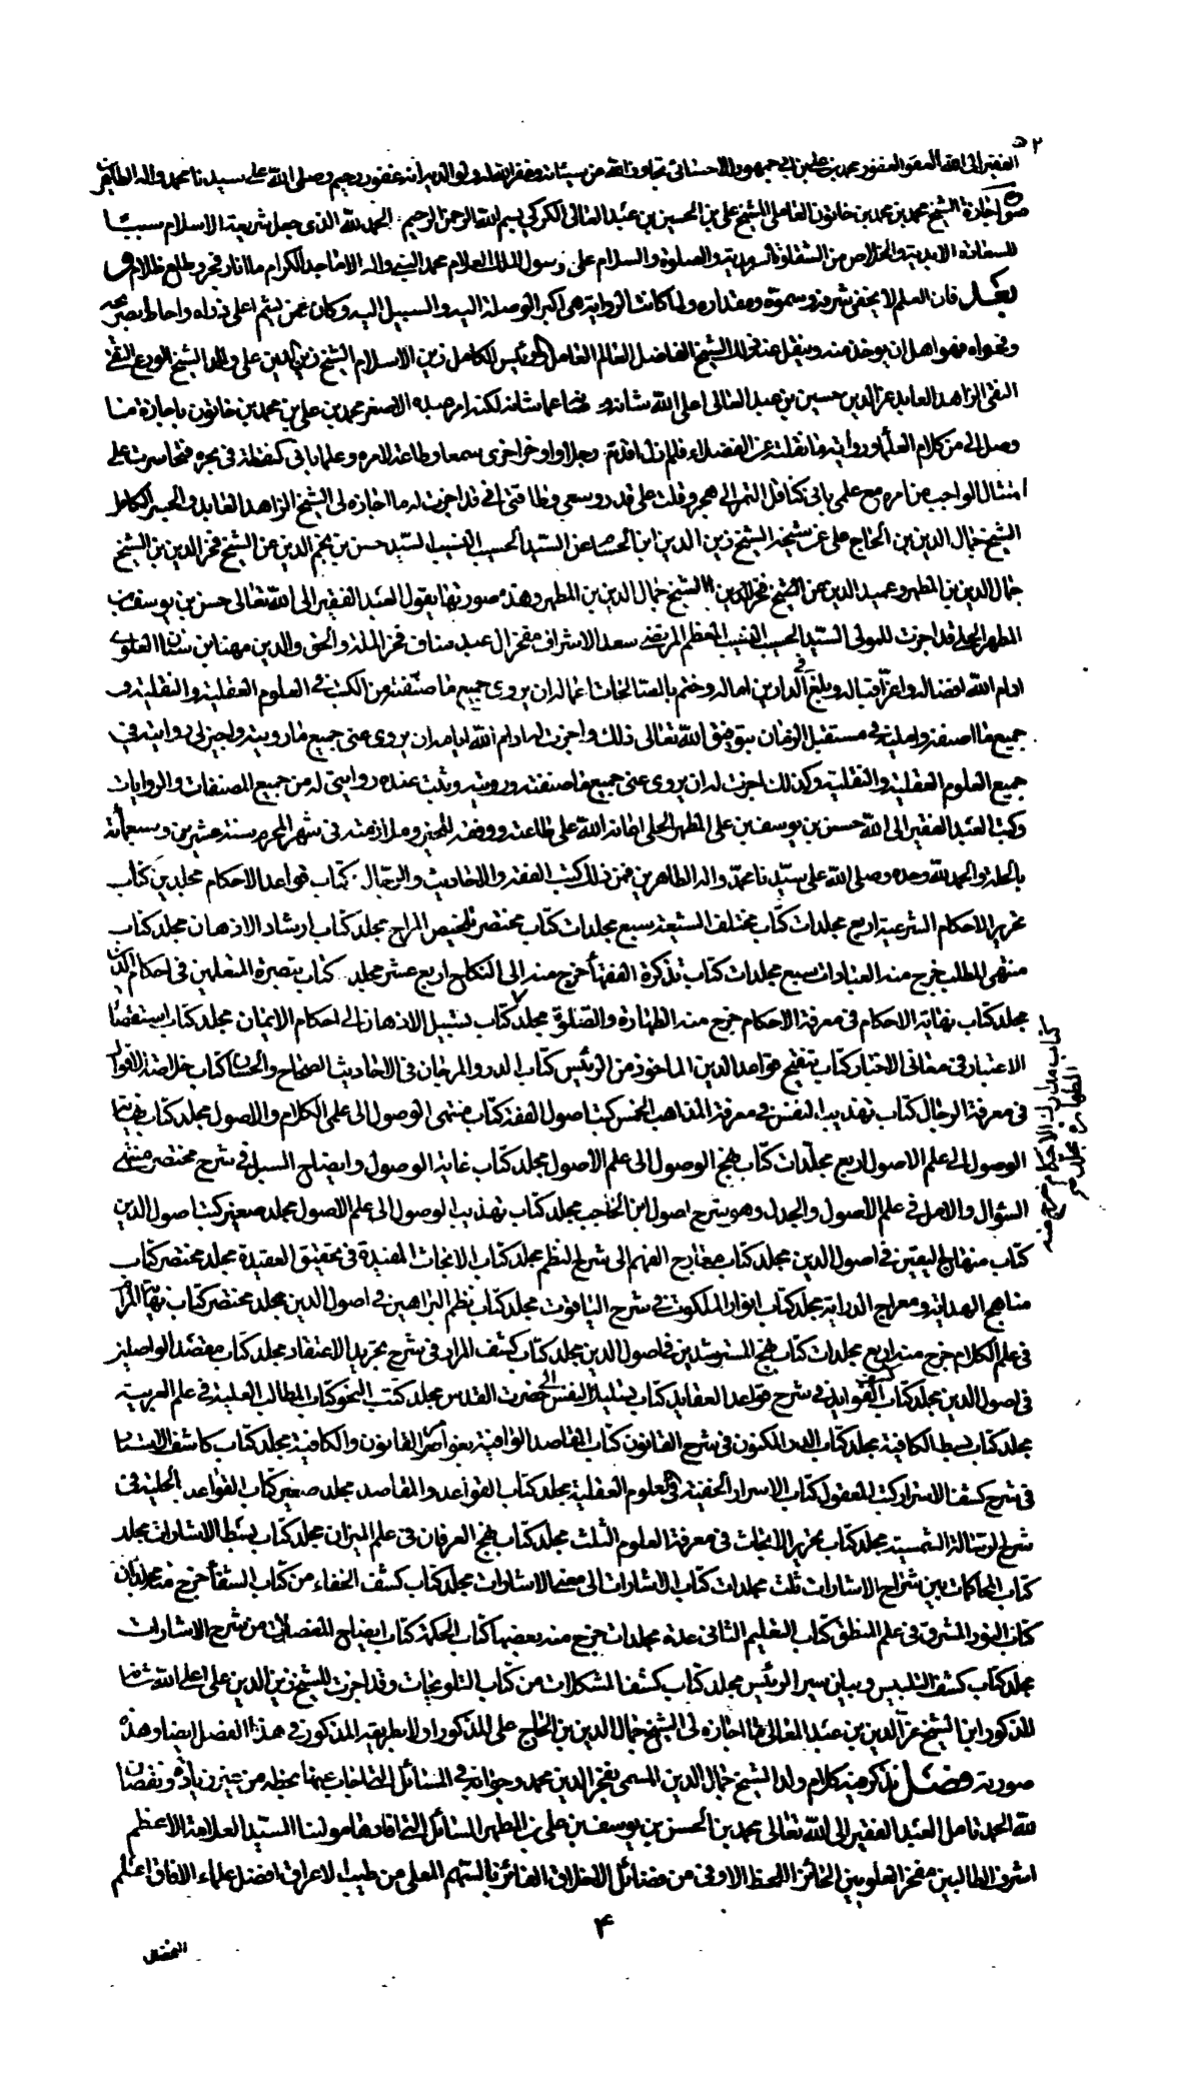 ٥٢
الفقير الى الله العفو الغفور محمد بن علي بن ابي جمهور الاحسائي تجاوز الله عن سيئاته وغفر الله له ولوالديه انه غفور رحيم وصلى الله على سيدنا محمد واله الطاهرين
صورة اجازة الشيخ محمد بن محمد بن خاتون العاملي للشيخ علي بن الحسين بن عبد العالي الكركي بسم الله الرحمن الرحيم الحمد لله الذي جعل شريعة الاسلام سببا
للسعادة الابدية والخلاص من الشقاوة السرمدية والصلوة والسلام على رسول الملك العلام محمد النبي واله الاماجد الكرام ما انار فجر وطلع ظلام و
بعد فان العلم لا يخفى شرفه وسموه ومقداره ولما كانت الرواية هي اكبر الوصلة اليه والسبيل اليه وكان ممن يشم اعلى واحاط بصريحه
وفحواه فهو اهل ان يوخذ منه وينقل عنه الشيخ الفاضل العالم العامل الرئيس الكامل زين الاسلام الشيخ زين الدين علي ولد الشيخ الورع التقي
النقي الزاهد العابد عز الدين حسين بن عبد العالي اعلى الله شانه امر عبده الاصغر محمد بن علي بن محمد بن خاتون باجازة منا
وصل الي من كلام العلماء ورواية ما نقلته عن الفضلاء فلم ازل اقدم رجلا واوخر اخرى سمعا وطاعة لامره وعلما باني كنقطة في بحره فتجاسرت على
امتثال الواجب من امره مع علمي باني كناقل التمر الى هجر وقلت على قدر وسعي وطاقتي اني قد اجزت له ما اجازه لي الشيخ الزاهد العابد والحبر الكامل
الشيخ جمال الدين بن الحاج علي عن شيخه الشيخ زين الدين ابن الحسام عن السيد الحسيب النسيب السيد حسن بن نجم الدين عن الشيخ فخر الدين بن الشيخ
جمال الدين بن المطهر وعميد الدين عن الشيخ فخر الدين الشيخ جمال الدين بن المطهر وهذه صورتها يقول العبد الفقير الى الله تعالى حسن بن يوسف بن
المطهر الحلي قد اجزت للمولى السيد الحسيب النسيب المعظم المرتضى سعد الاشراف مفخر ال عبد مناف فخر الملة والحق والدين مهنا بن سنان العلوي
ادام الله افضاله واعز اقباله وبلغه في الدارين اماله وختم بالصالحات اعماله ان يروي جميع ما صنفته من الكتب في العلوم العقلية والنقلية و
جميع ما اصنفه وامليه في مستقبل الزمان بتوفيق الله تعالى ذلك واجزت له ادام الله ايامه ان يروي عني جميع ما رويته واجيز لي روايته في
جميع العلوم العقلية والنقلية وكذلك اجزت له ان يروي عني جميع ما صنفته ورويته وثبت عنده روايتي له من جميع المصنفات والروايات
وكتب العبد الفقير الى الله حسن بن يوسف بن علي المطهر الحلي اعانه الله على طاعته ووفقه للخير وملازمته في شهر المحرم سنة عشرين وسبعمائة
بالحلة والحمد لله وحده وصلى الله على سيدنا محمد واله الطاهرين فمن ذلك كتب الفقه والاحاديث والرجال كتاب قواعد الاحكام مجلدين كتاب
تحرير الاحكام الشرعية اربع مجلدات كتاب مختلف الشيعة سبع مجلدات كتاب مختصر تلخيص المرام مجلد كتاب ارشاد الاذهان مجلد كتاب
منتهى المطلب خرج منه العبادات سبع مجلدات كتاب تذكرة الفقهاء خرج منه الى النكاح اربع عشر مجلد كتاب تبصرة المتعلمين في احكام الدين
مجلد كتاب نهاية الاحكام في معرفة الاحكام خرج منه الطهارة والصلوة مجلد كتاب تسبيل الاذهان الى احكام الايمان مجلد كتاب استقصاء
الاعتبار في معاني الاخبار كتاب تنقيح قواعد الدين الماخوذ من الرئيس كتاب الدر والمرجان في الاحاديث الصحاح والحسان كتاب خلاصة الاقوال
في معرفة الرجال كتاب تهذيب النفس في معرفة المذاهب الخمس كتب اصول الفقه كتاب منتهى الوصول الى علمي الكلام والاصول مجلد كتاب نهاية
الوصول الى علم الاصول اربع مجلدات كتاب نهج الوصول الى علم الاصول مجلد كتاب غاية الوصول وايضاح السبل في شرح مختصر منتهى
السؤال والامل في علم الاصول والجدل وهو شرح اصول ابن الحاجب مجلد كتاب تهذيب الوصول الى علم الاصول مجلد صغير كتب اصول الدين
كتاب منهاج اليقين في اصول الدين مجلد كتاب معارج الفهم الى شرح النظم مجلد كتاب الابحاث المفيدة في تحقيق العقيدة مجلد مختصر كتاب
مناهج الهداية ومعراج الدراية مجلد كتاب انوار الملكوت في شرح الياقوت مجلد كتاب نظم البراهين في اصول الدين مجلد مختصر كتاب نهاية المرام
في علم الكلام خرج منه اربع مجلدات كتاب نهج المسترشدين في اصول الدين مجلد كتاب كشف المراد في شرح تجريد الاعتقاد مجلد كتاب مقصد الواصلين
في اصول الدين مجلد كتاب كشف الفوايد في شرح قواعد العقايد كتاب تسليك النفس الى حضرت القدس مجلد كتب النحو كتاب المطالب العلية في علم العربية
مجلد كتاب بسط الكافية مجلد كتاب الدر المكنون في شرح القانون كتاب المقاصد الوافية بفوائد القانون والكافية مجلد كتاب كاشف الاستار
في شرح كشف الاسرار كتب المعقول كتاب الاسرار الخفية في العلوم العقلية مجلد كتاب القواعد والمقاصد مجلد صغير كتاب القواعد الجلية في
شرح الرسالة الشمسية مجلد كتاب تحرير الابحاث في معرفة العلوم الثلث مجلد كتاب نهج العرفان في علم الميزان مجلد كتاب بسط الاشارات مجلد
كتاب المحاكمات بين شراح الاشارات ثلث مجلدات كتاب الاشارات الى معنى الاشارات مجلد كتاب كشف الخفاء من كتاب الشفا خرج منه مجلدان
كتاب النور المشرق في علم المنطق كتاب التعليم الثاني عدة مجلدات خرج منه بعضها كتاب الحكمة كتاب ايضاح المعضلات من شرح الاشارات
مجلد كتاب كشف التلبيس وبيان سير الرئيس مجلد كتاب كشف المشكلات من كتاب التلويحات وقد اجزت للشيخ زين الدين علي اعلى الله شانه
المذكور ابن الشيخ عز الدين بن عبد العالي ما اجازه لي الشيخ جمال الدين بن الحاج علي المذكور اولا بطريقه المذكور في هذا الفصل ايضا وهذه
صورته فصل يذكر فيه كلام ولد الشيخ جمال الدين المسمى بفخر الدين محمد وجوابه في المسائل من غير زيادة ونقصان
لله الحمد قابل العبد الفقير الى الله تعالى محمد بن الحسن بن يوسف بن علي بن المطهر المسائل التي افادها مولينا السيد العلامة الاعظم
اشرف الطالبين مفخر العلويين الحائز اللحظ الاوفى من فضائل الاخلاق الفائز بالسهم المعلى من طيب الاعراق افضل علماء الافاق اعلم
كتاب مدارك الاحكام خرج منه
الطهارة مجلد
٤